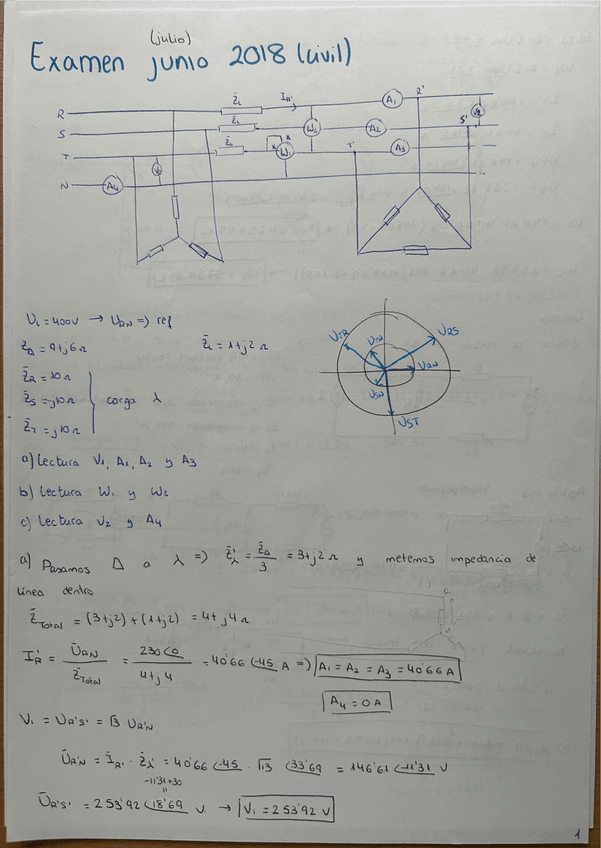 (julio)
Examen junio 2018 (civil)
R
S
T
N
Z̄L
Z̄L
Z̄L
IR'
W2
W1
A1
A2
A3
A4
R'
S'
T'
UL = 400V → URN => ref
Z̄Δ = 9+j6 Ω
Z̄L = 1+j2 Ω
Z̄R = 10 Ω
Z̄S = -j10 Ω
Z̄T = j10 Ω
carga λ
UTR
UTN
URS
URN
USN
UST
a) Lectura V1, A1, A2 y A3
b) Lectura W1 y W2
c) Lectura V2 y A4
a) Pasamos Δ a λ => Z̄'λ = Z̄Δ/3 = 3+j2 Ω y metemos impedancia de
línea dentro
Z̄Total = (3+j2) + (1+j2) = 4+j4 Ω
ĪR' = ŪRN/Z̄Total = 230∠0/4+j4 = 40'66∠-45 A => A1 = A2 = A3 = 40'66 A
A4 = 0 A
V1 = UR'S' = √3 UR'N
ŪR'N = ĪR' · Z̄λ' = 40'66∠-45 · √13∠33'69 = 146'61∠-11'31 V
-11'31+30
ŪR'S' = 253'92∠18'69 V → V1 = 253'92 V
1